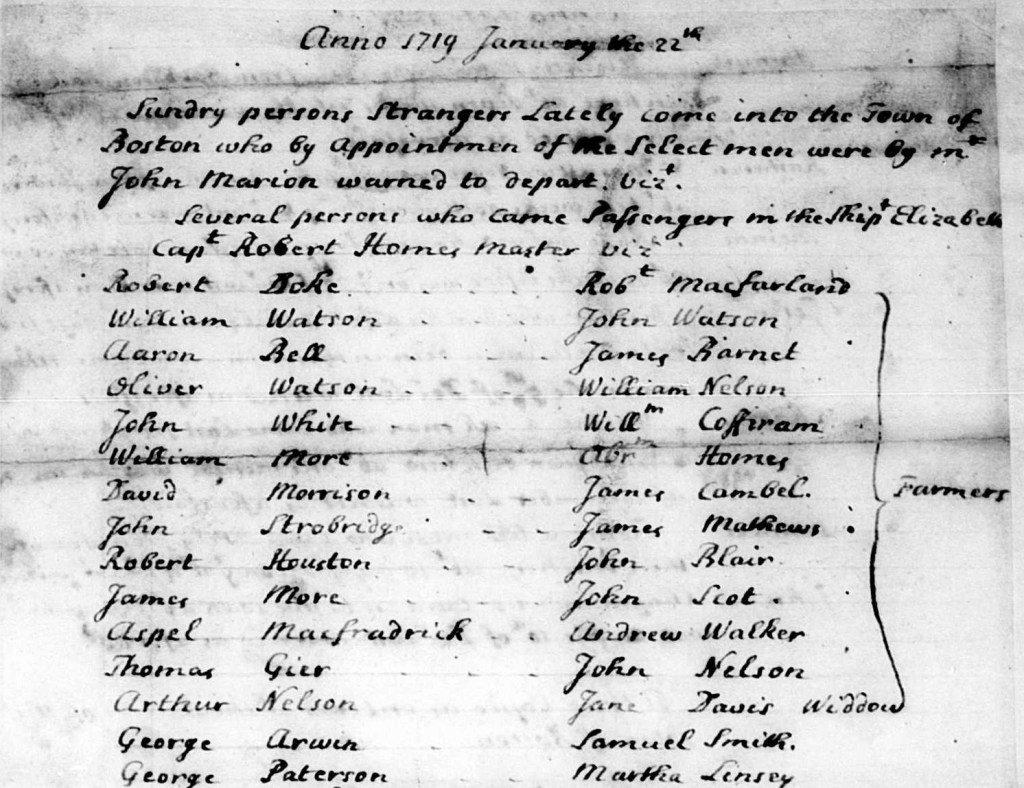 Anno 1719 January the 22th
Sundry persons Strangers Lately come into the Town of
Boston who by Appointmen of the Select men were by mr
John Marion warned to depart. vizt.
Several persons who came Passengers in the Shipt Elizabeth
Capt Robert Homes Master vizt
Robert Doke Robt Macfarland
William Watson John Watson
Aaron Bell James Barnet
Oliver Watson William Nelson
John White Willm Coffiram
William More Abrm Homes
David Morrison James Cambel. Farmers
John Strobridge James Mathews
Robert Houston John Blair
James More John Scot
Aspel Macfradrick Andrew Walker
Thomas Gier John Nelson
Arthur Nelson Jane Davis Widdow
George Arwin Samuel Smith.
George Paterson Martha Linsey